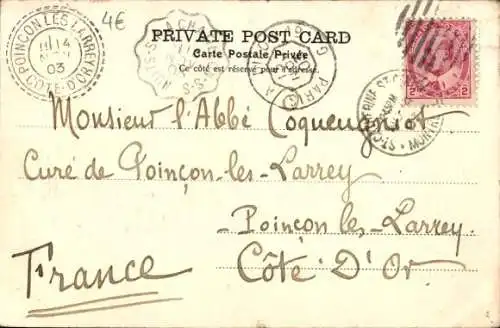 4€
POINÇON LES LARREY
14
03
CÔTE-D'OR
PRIVATE POST CARD
Carte Postale Privée
Ce côté est réservé pour l'adresse.
PARIS
2 2
Monsieur l'Abbé Coqueugniot
Curé de Poinçon-les-Larrey
Poinçon les Larrey
Côte D'Or
France